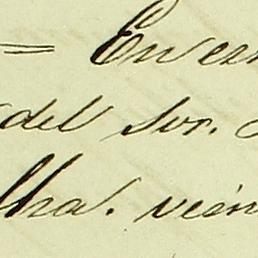 = En
del Sor.
lha. vein